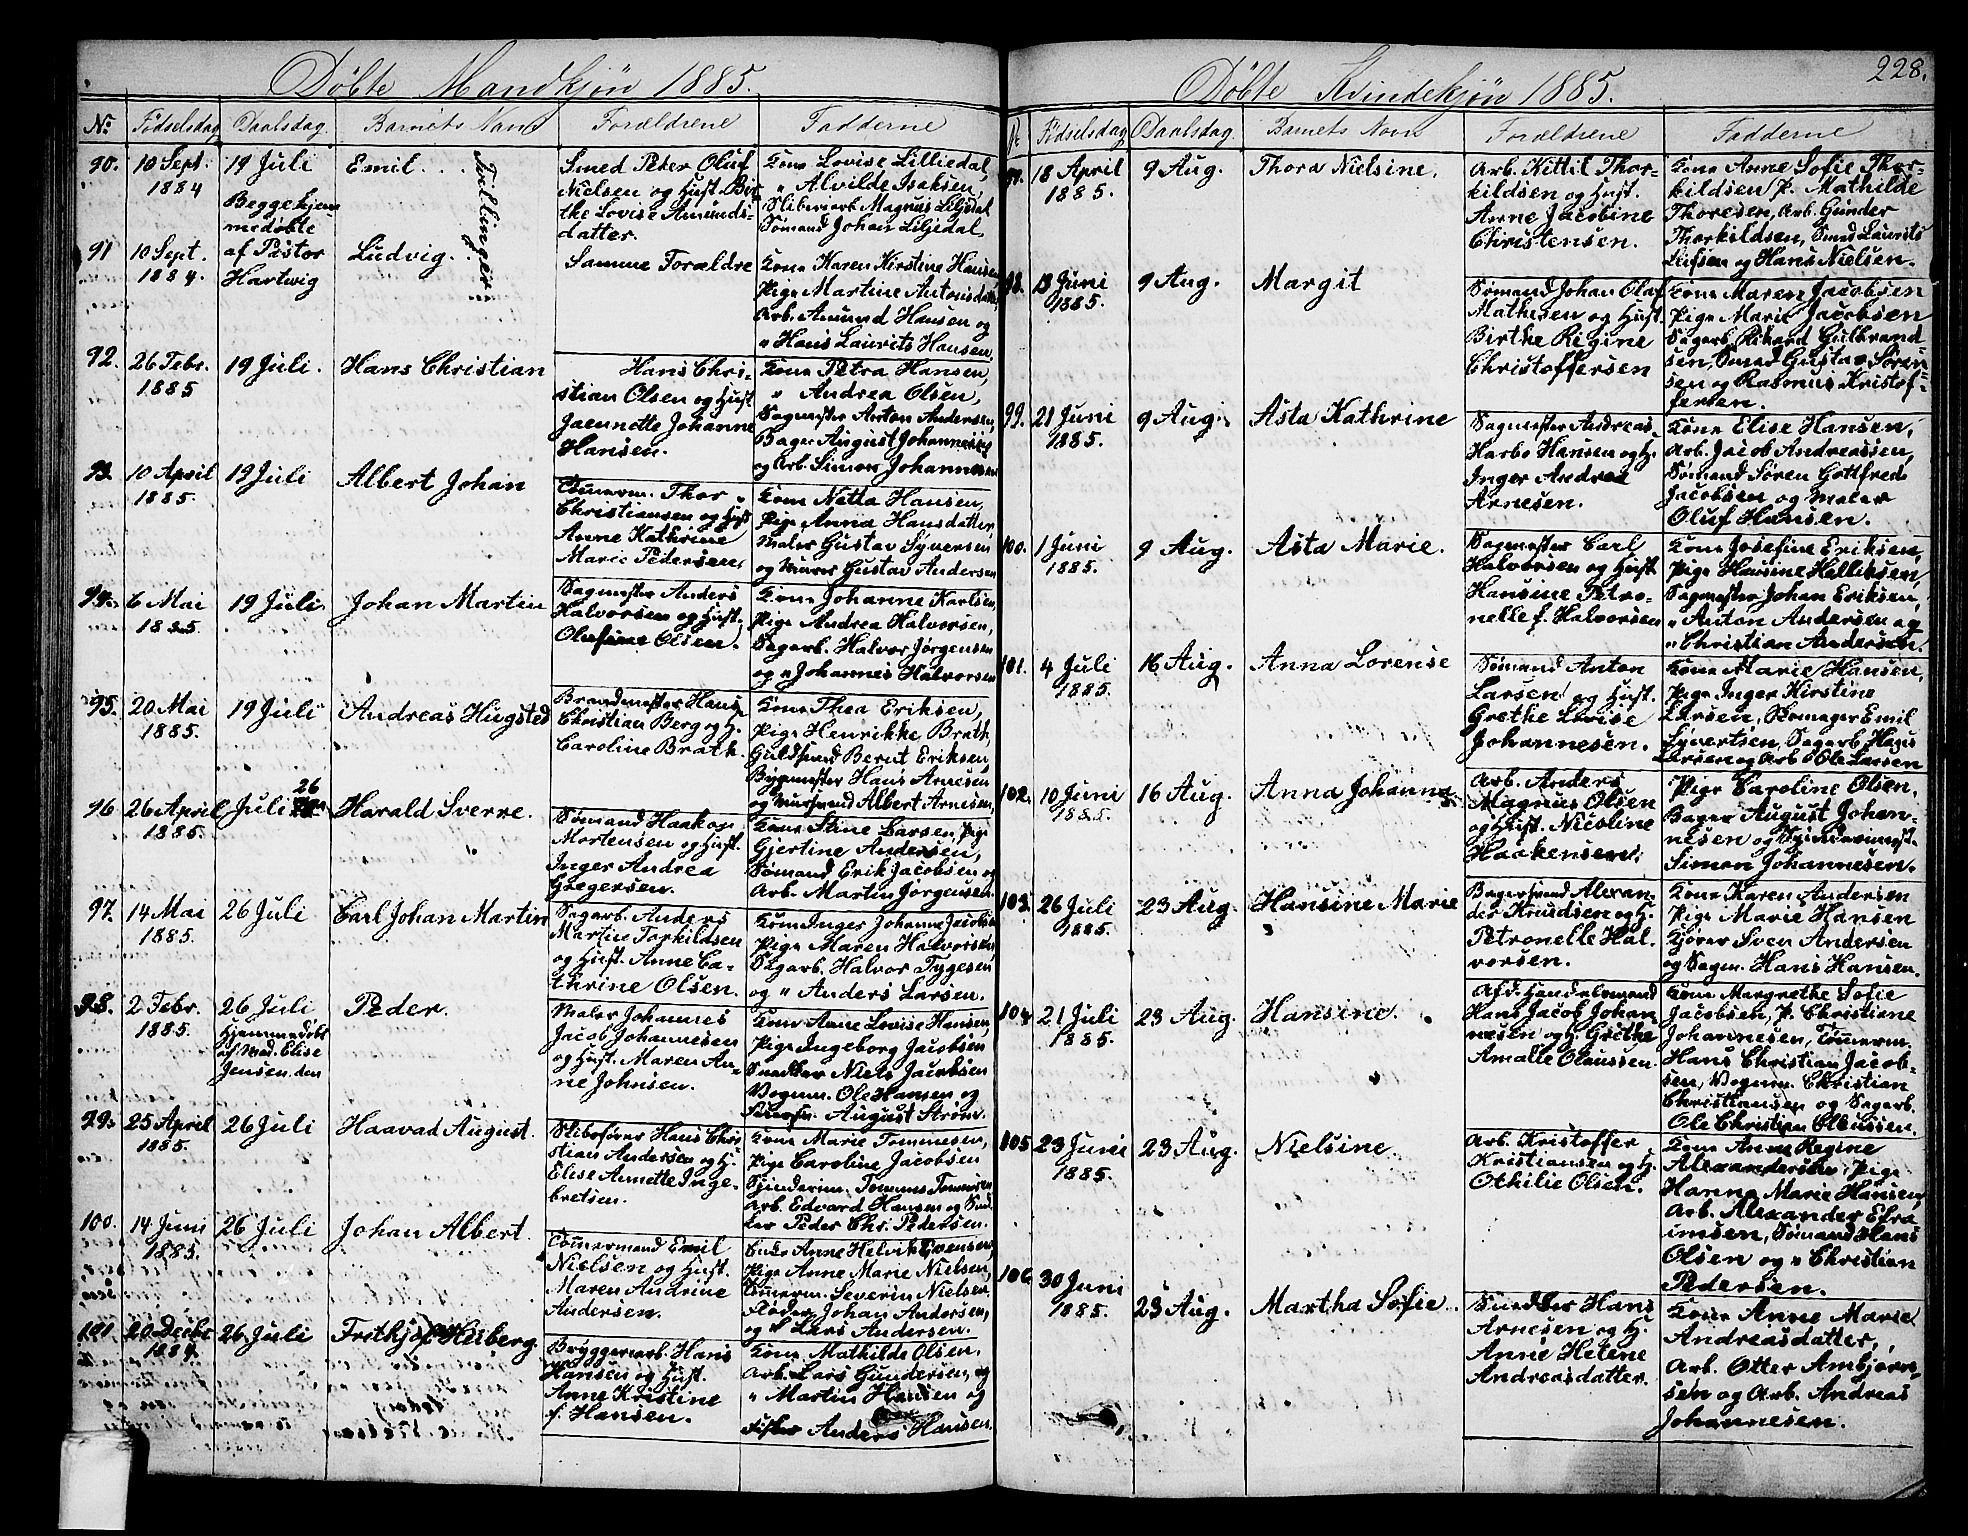 228.
Döbte Mandkjøn 1885.
No Fødselsdag Daabsdag. Barnets Navn Forældrene Fadderne
90. 10 Sept. 1884
19 Juli
Begge hjem-
medøbte
af Pastor
Hartvig
Emil . . .
Tvillinger
Smed Peter Oluf
Nielsen og Hust. Bir-
the Lovise Amunds-
datter.
Kone Lovise Lilliedal,
" Alvilde Isaksen,
Sliberiarb Magnus Liljedal
Sømand Johan Liljedal
91 10 Sept.
1884.
Ludvig. .
Samme Forældre
Kone Karen Kirstine Hansen
Pige Martine Antonsdatter,
Arb. Amund Hansen og
" Hans Laurits Hansen,
92. 26 Febr.
1885
19 Juli.
Hans Christian
Hans Chri-
stian Olsen og Hust
Jaennette Johanne
Hansen.
Kone Petra Hansen,
" Andrea Olsen,
Sagmester Anton Andersen,
Bager August Johannesen
og Arb. Simon Johannesen
93. 10 April
1885.
19 Juli
Albert Johan
Tømmerm. Thor
Christiansen og Hust
Anne Kathrine
Marie Pedersen,
Kone Netta Hansen,
Pige Anna Hansdatter,
Maler Gustav Syversen
og Murer Gustav Andersen
94. 6 Mai
1885
19 Juli.
Johan Martin
Sagmester Anders
Halvorsen og Hust.
Olufine Olsen.
Kone Johanne Karlsen,
Pige Andrea Halvorsen,
Sagarb. Halvor Jørgensen
og " Johannes Halvorsen
95. 20 Mai
1885.
19 Juli
Andreas Hugsted
Brandmester Hans
Christian Berg og H.
Caroline Brath.
Kone Thea Eriksen,
Pige Henrikke Brath,
Guldsmed Bernt Eriksen,
Bygmester Hans Arnesen
og Mursvend Albert Arnesen,
96 26 April
1885.
26
Juli
Harald Sverre.
Sømand Haakon
Mortensen og Hust.
Inger Andrea
Gregersen.
Kone Stine Larsen, Pige
Gjertine Andersen,
Sømand Erik Jacobsen og
Arb. Martin Jørgensen.
97. 14 Mai
1885.
26 Juli
Carl Johan Martin
Sagarb. Anders
Martin Torkildsen
og Hust. Anne Ca-
thrine Olsen.
Kone Inger Johanne Jacobsen
Pige Maren Halvorsen
Sagarb. Halvor Tygesen
og " Anders Larsen.
98. 2 Febr.
1885.
26 Juli
Hjemmedøbt
af Mad. Elise
Jensen den
Peder.
Maler Johannes
Jacob Johannesen
og Hust. Maren An-
ne Johnsen.
Kone Anne Lovise Hansen
Pige Ingeborg Jacobsen
Snedker Niels Jacobsen
Vognm. Ole Hansen og
August Strøm.
99. 25 April
1885.
26 Juli
Haavad August.
Slibefører Hans Chri
stian Andersen og H.
Elise Annette Inge-
bretsen.
Kone Marie Tommesen,
Pige Caroline Jacobsen
Tommes Tommesen
Arb. Edvard Hansen og Sned
ker Peder Chr. Pedersen.
100. 14 Juni
1885.
26 Juli
Johan Albert.
Tømmermand Emil
Nielsen og Hust.
Maren Andrine
Andersen.
Enke Anne Helvik Evensen,
Pige Anne Marie Nielsen,
Tømmerm. Severin Nielsen
Fløder Johan Andersen,
og " Lars Andersen.
101. 20 Decbr
1884.
26 Juli
Frithjof Heiberg
Bryggeriarb. Hans
Hansen og Hust.
Anne Kristine
f. Hansen.
Kone Mathilde Olsen,
Arb. Lars Gundersen, og
" Martin Hansen og
Fisker Anders Hansen.
Döbte Kvindekjøn 1885.
No Fødselsdag Daabsdag. Barnets Navn Forældrene Fadderne
97. 18 April
1885.
9 Aug.
Thora Nielsine.
Arb. Kittil Thor-
kildsen og Hust.
Anne Jacobine
Christensen.
Kone Anne Sofie Thor-
kildsen, P. Mathilde
Thoresen, Arb. Gunder
Thorkildsen, Smed Laurits
og Hans Nielsen.
98. 13 Juni
1885.
9 Aug.
Margit
Sømand Johan Olaf
Mathisen og Hust.
Birthe Regine
Christoffersen
Kone Maren Jacobsen
Pige Marie Jacobsen
Sagarb. Rikard Gulbrand-
sen, Smed Gustav Søren-
sen og Rasmus Kristof-
fersen.
99. 21 Juni
1885.
9 Aug.
Asta Kathrine
Sagmester Andreas
Harbo Hansen og H.
Inger Andrea
Arnesen.
Kone Elise Hansen,
Arb. Jacob Andreassen,
Sømand Søren Gottfred
Jacobsen og Maler
Oluf Hansen.
100. 1 Juni
1885.
9 Aug.
Asta Marie.
Sagmester Carl
Halvorsen og Hust
Hansine Petro-
nelle f. Halvorsen
Kone Josefine Eriksen,
Pige Hansine Helliksen,
Sagmester Johan Eriksen,
" Anton Andersen og
" Christian Andersen.
101. 4 Juli
1885.
16 Aug.
Anna Lorense
Sømand Anton
Larsen og Hust.
Grethe Lovise
Johannesen.
Kone Marie Hansen,
Pige Inger Kirstine
Larsen, Skomager Emil
Syvertsen, Sagarb. Hans
Larsen og Arb Ole Larsen
102. 10 Juni
1885
16 Aug.
Anna Johanna
Arb. Anders
Magnus Olsen
og Hust. Nicoline
Haakensen.
Pige Caroline Olsen,
Bager August Johan-
nesen og
Simon Johannesen.
103. 26 Juli
1885.
23 Aug
Hansine Marie
Bagersvend Alexan-
der Knudsen og H.
Petronelle Hal-
vorsen.
Kone Karen Andersen
Pige Marie Hansen
Kjører Sven Andersen
og Sagm. Hans Hansen.
104 21 Juli
1885.
23 Aug.
Hansine.
Afd. Handelsmand
Hans Jacob Johan
nesen og H. Grethe
Amalie Olaussen.
Kone Margrethe Sofie
Jacobsen, P. Christiane
Johannesen, Tømmerm.
Hans Christian Jacob-
sen, Vognm. Christian
Christiansen og Sagarb.
Ole Christian Olaussen.
105 23 Juni
1885.
23 Aug.
Nielsine.
Arb. Kristoffer
Kristiansen og H.
Othilie Olsen.
Kone Anne Regine
Alexandersen, Pige
Hanna Marie Hansen,
Arb. Alexander Efra
imsen, Sømand Hans
Olsen og " Christian
Pedersen.
106. 30 Juni
1885.
23 Aug.
Martha Sofie.
Snedker Hans
Arnesen og H.
Anne Helene
Andreasdatter.
Kone Anne Marie
Andreasdatter,
Arb. Otter Ambjørn-
sen og Arb. Andreas
Johannesen.